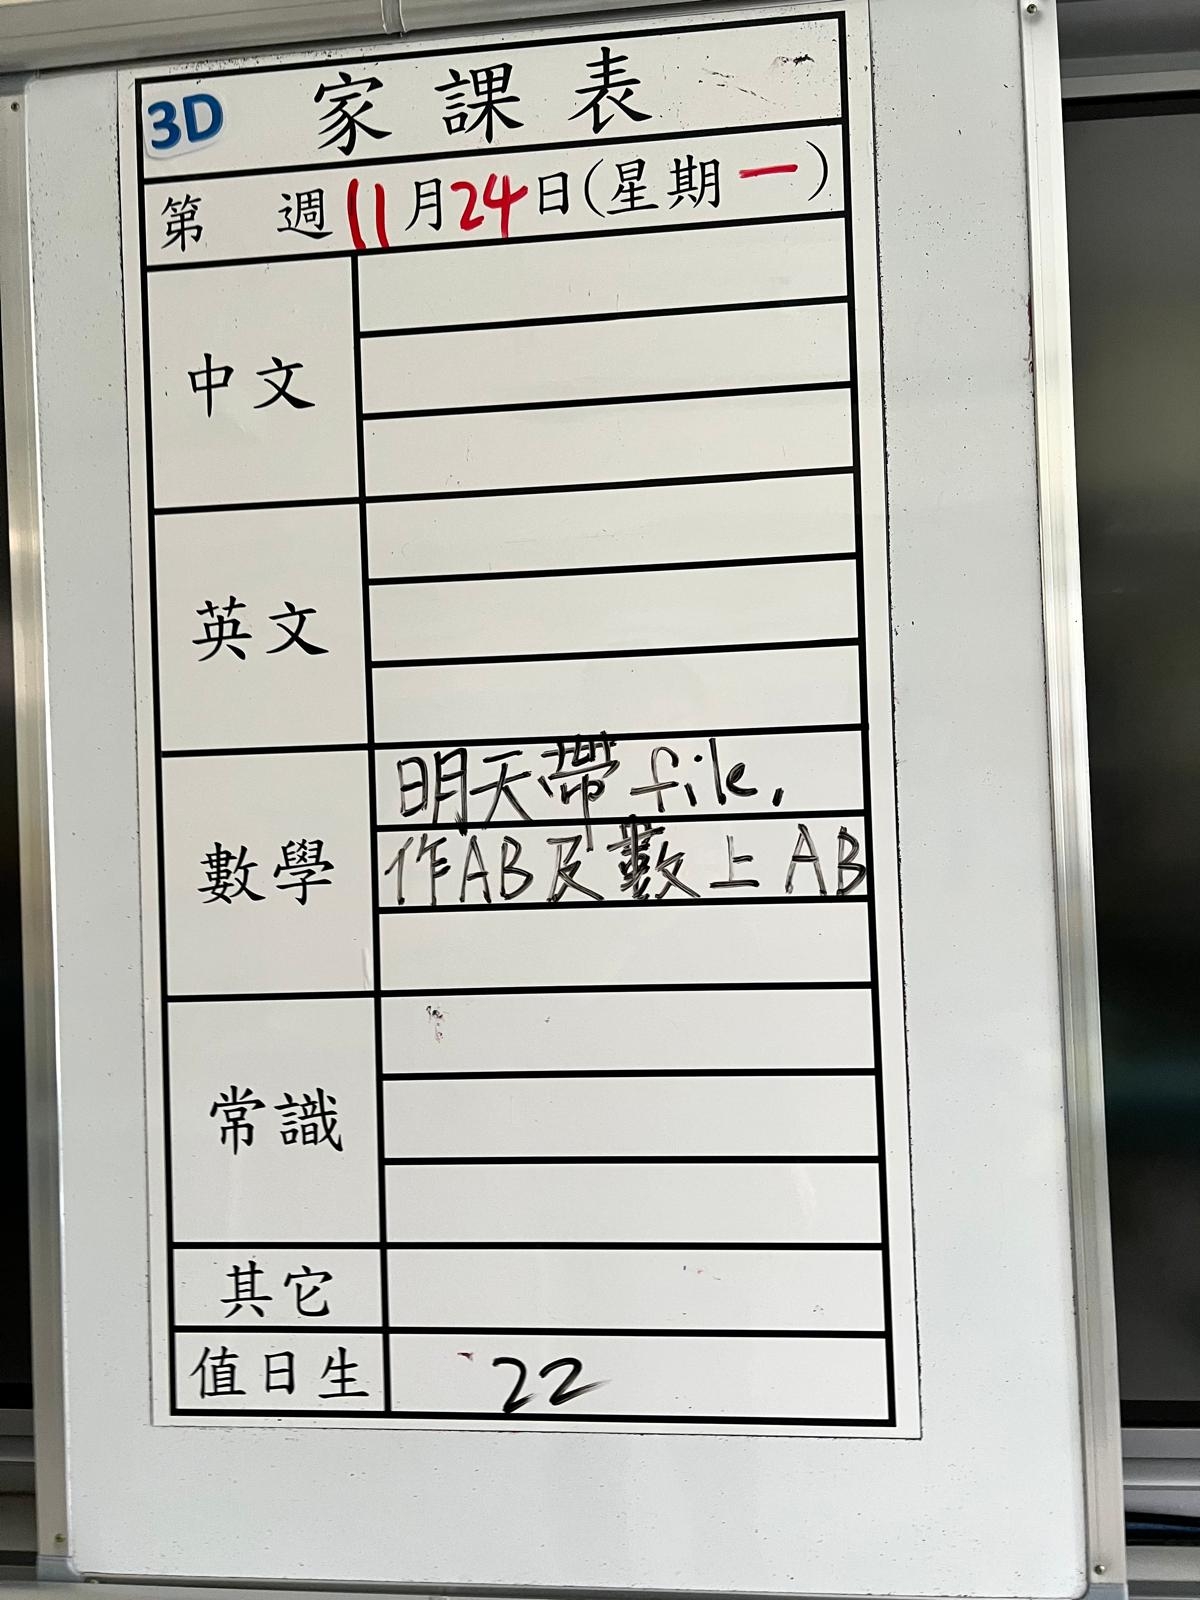 3D 家課表
第 週 11月24日(星期一)
中文
英文
數學
明天帶 file,
作AB及數上AB
常識
其它
值日生 22